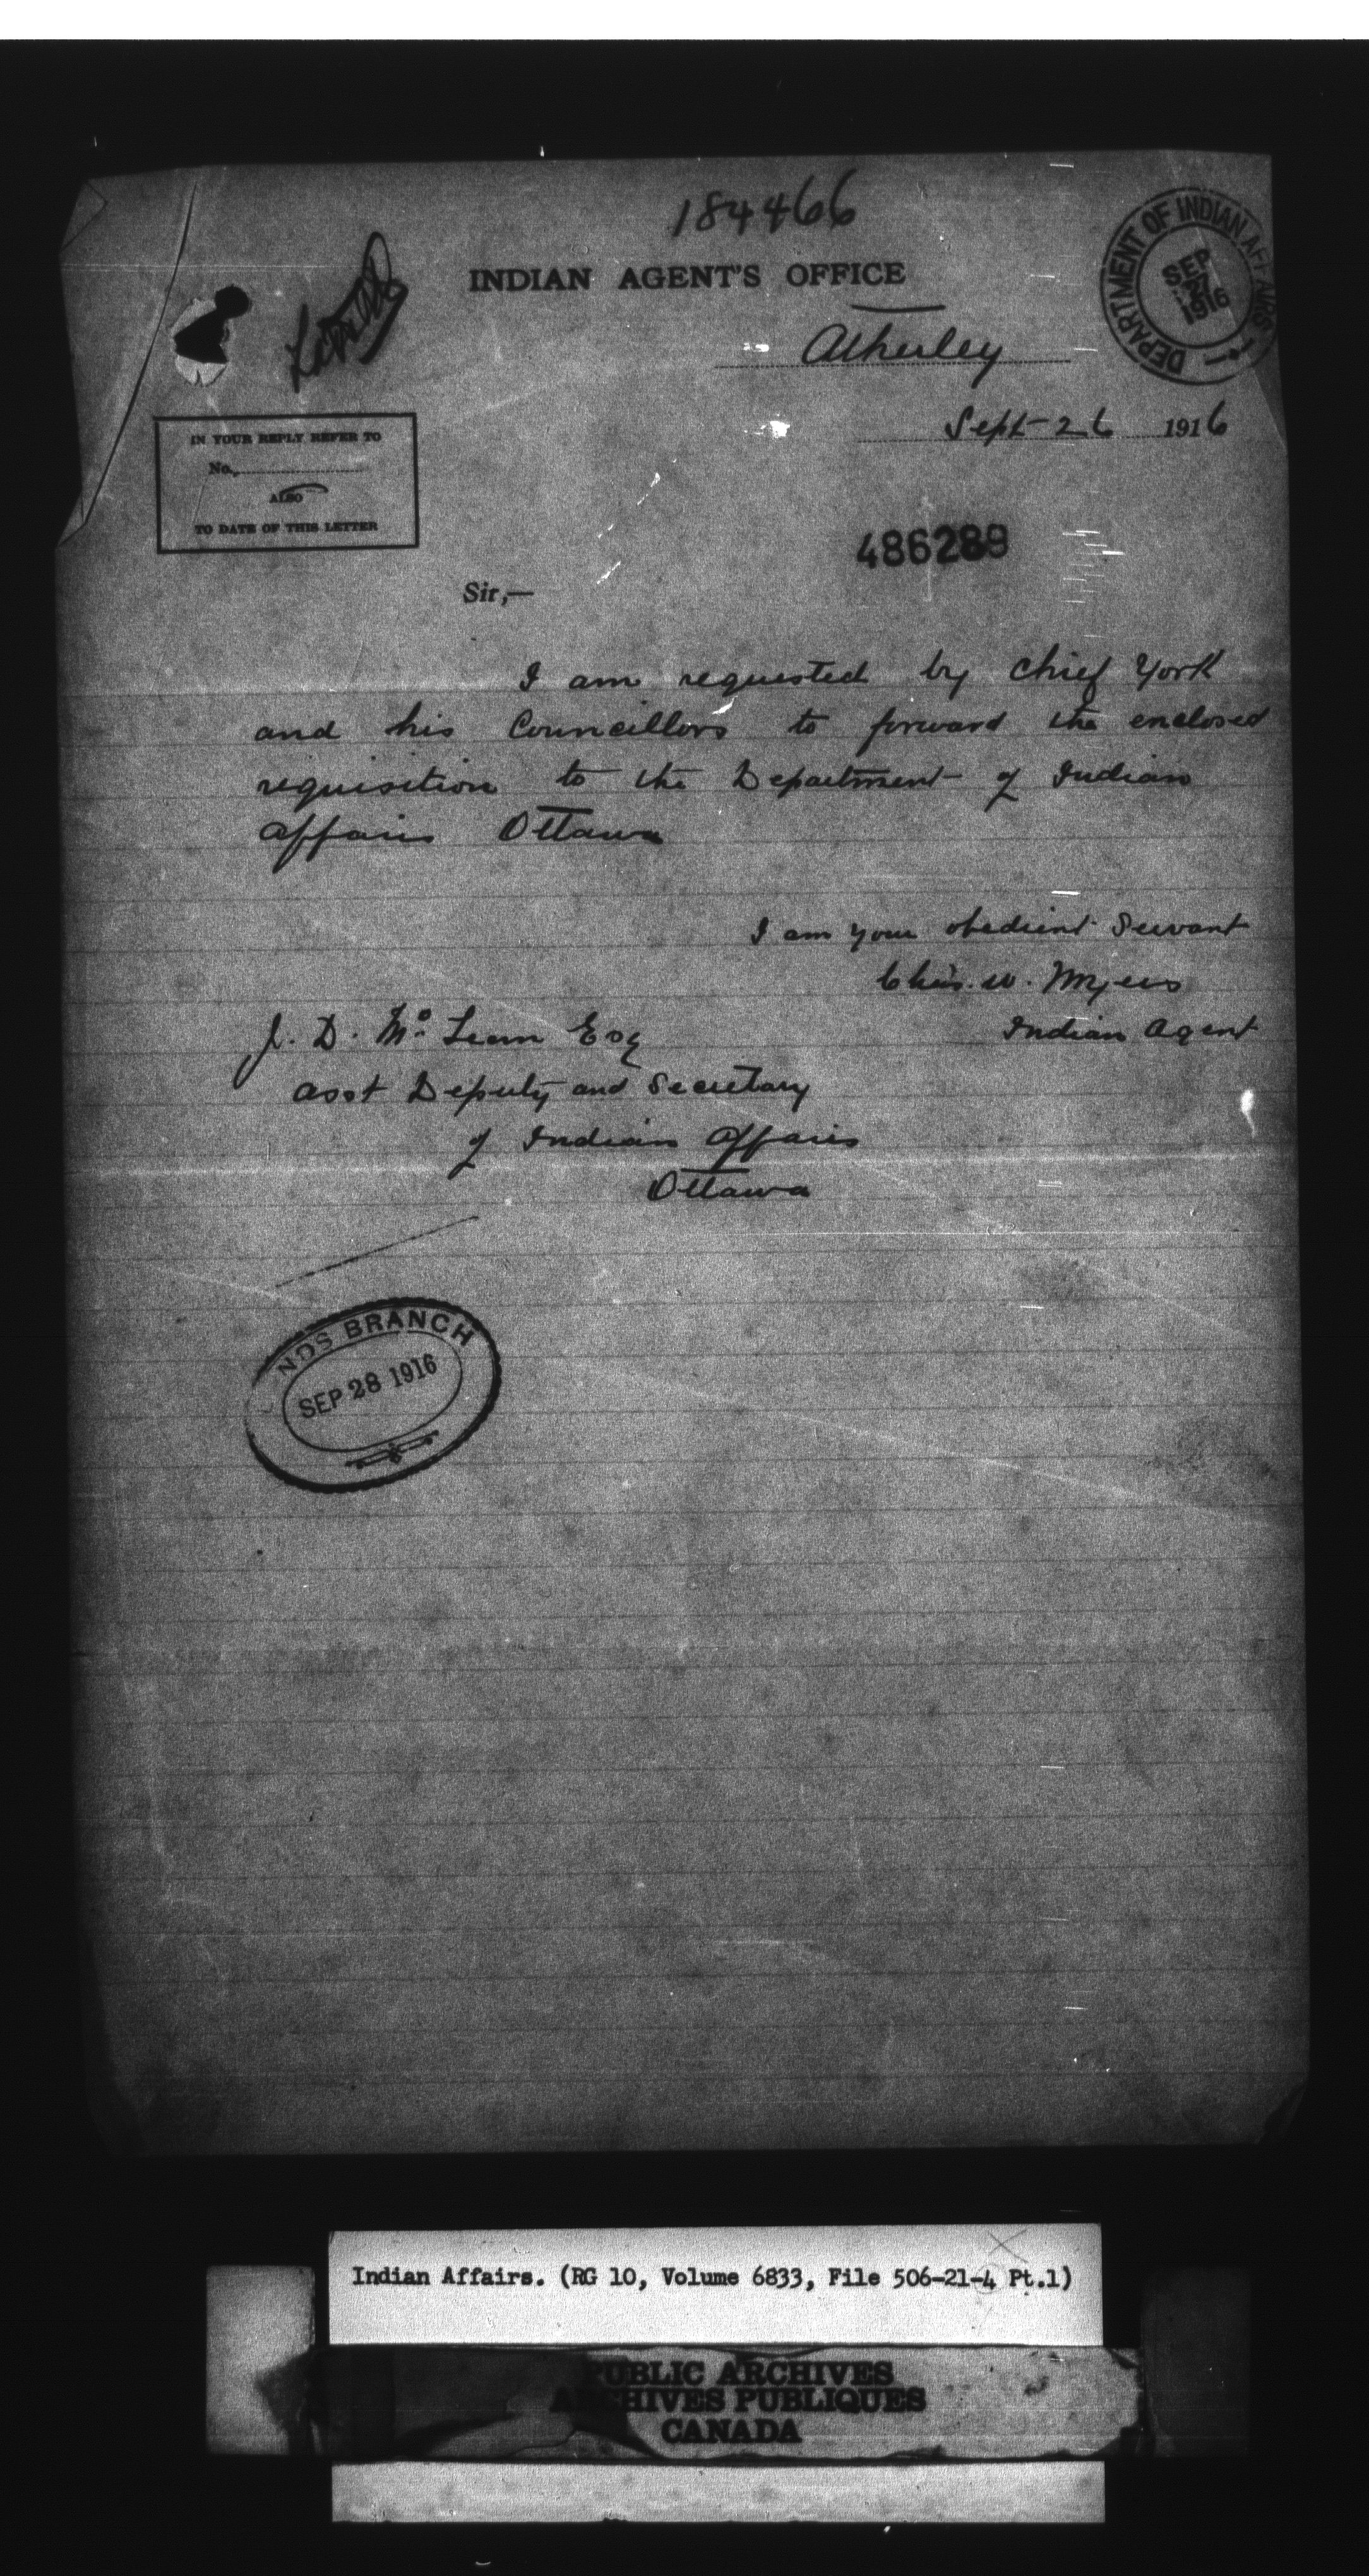 184466
INDIAN AGENT'S OFFICE
DEPARTMENT OF INDIAN AFFAIRS
SEP
1916
Atherley
Sept 26 1916
IN YOUR REPLY REFER TO
No.
ALSO
TO DATE OF THIS LETTER
486289
Sir,—
I am requested by Chief York
and his Councillors to forward the enclosed
requisition to the Department of Indian
Affairs Ottawa
I am your obedient Servant
Chas. W. Myers
Indian Agent
J. D. Mc Lean Esq
Asst Deputy and Secretary
of Indian Affairs
Ottawa
NDS BRANCH
SEP 28 1916
Indian Affairs. (RG 10, Volume 6833, File 506-21-4 Pt.1)
PUBLIC ARCHIVES
ARCHIVES PUBLIQUES
CANADA